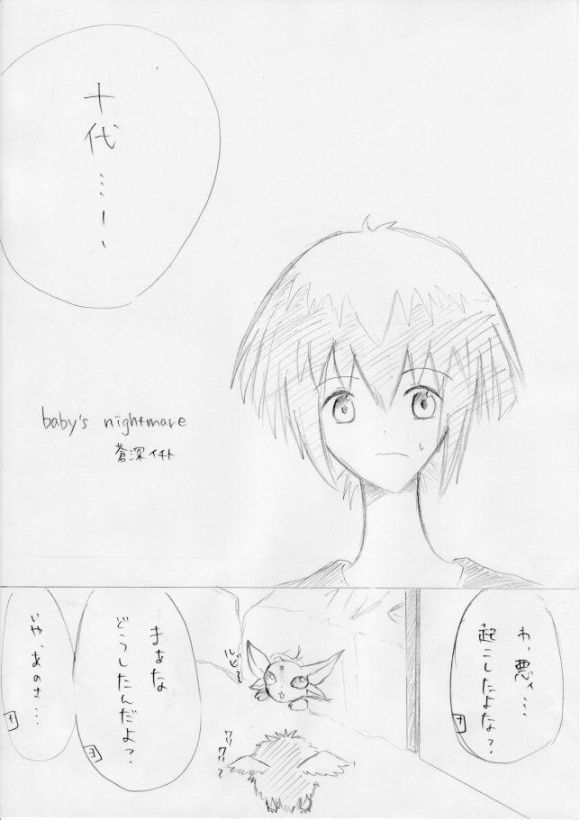 十代…!、
baby's nightmare
蒼深イチト
わ、悪ィ…
起こしたよな?
十
まぁな
どうしたんだよ?
ヨ
いや、あのさ…
十
ルビ〜
クリクリ〜